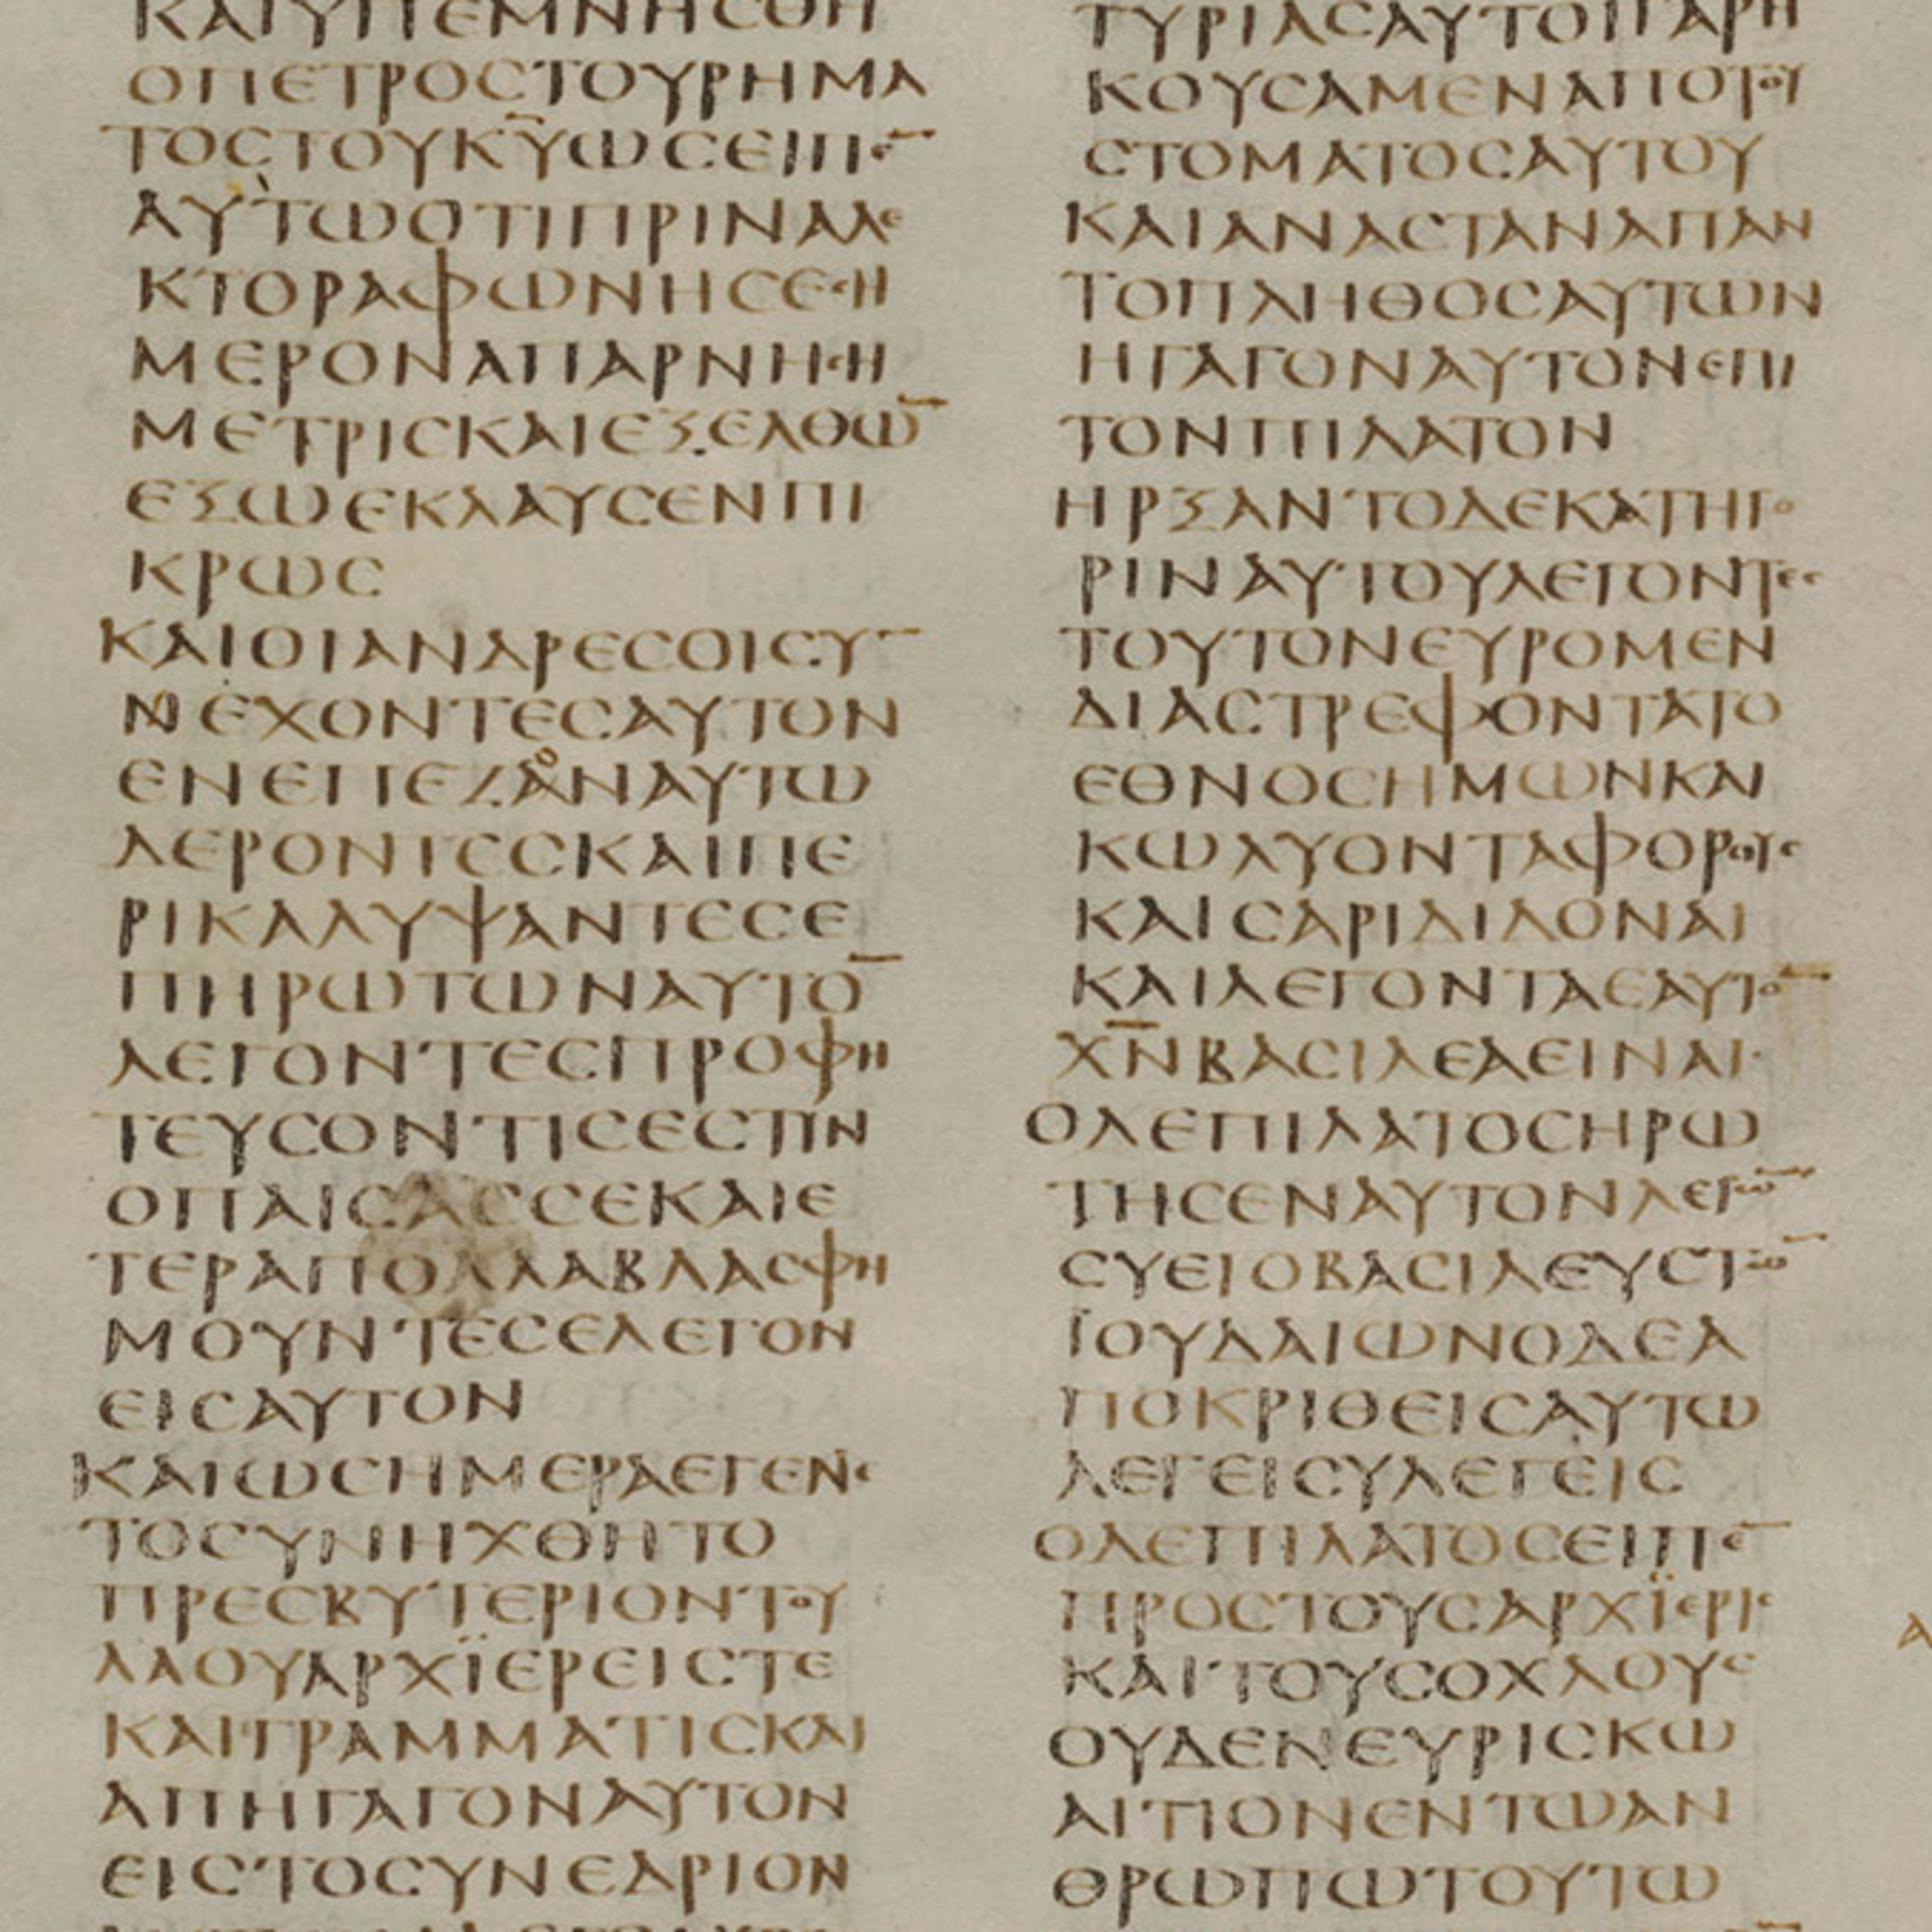 ΚΑΙΥΠΕΜΝΗСΘΗ
ΟΠΕΤΡΟСΤΟΥΡΗΜΑ
ΤΟСΤΟΥΚ̅Υ̅ѠСΕΙΠΕ̅
ΑΥΤѠΟΤΙΠΡΙΝΑΛΕ
ΚΤΟΡΑΦѠΝΗСΕСΗ
ΜΕΡΟΝΑΠΑΡΝΗСΗ
ΜΕΤΡΙСΚΑΙΕΞΕΛΘѠ̅
ΕΞѠΕΚΛΑΥСΕΝΠΙ
ΚΡѠС
ΚΑΙΟΙΑΝΔΡΕСΟΙСΥ̅
ΝΕΧΟΝΤΕСΑΥΤΟΝ
ΕΝΕΠΕΖΑΟΝΑΥΤѠ
ΔΕΡΟΝΤΕСΚΑΙΠΕ
ΡΙΚΑΛΥΨΑΝΤΕСΕ
ΠΗΡѠΤѠΝΑΥΤΟ̅
ΛΕΓΟΝΤΕСΠΡΟΦΗ
ΤΕΥСΟΝΤΙСΕСΤΙΝ
ΟΠΑΙСΑССΕΚΑΙΕ
ΤΕΡΑΠΟΛΛΑΒΛΑСΦΗ
ΜΟΥΝΤΕСΕΛΕΓΟΝ
ΕΙСΑΥΤΟΝ
ΚΑΙѠСΗΜΕΡΑΕΓΕΝΕ
ΤΟСΥΝΗΧΘΗΤΟ
ΠΡΕСΒΥΤΕΡΙΟΝΤΟΥ
ΛΑΟΥΑΡΧΪΕΡΕΙСΤΕ
ΚΑΙΓΡΑΜΜΑΤΙСΚΑΙ
ΑΠΗΓΑΓΟΝΑΥΤΟΝ
ΕΙСΤΟСΥΝΕΔΡΙΟΝ
ΤΥΡΙΑСΑΥΤΟΙΠΑΡΗ
ΚΟΥСΑΜΕΝΑΠΟΤΟΥ
СΤΟΜΑΤΟСΑΥΤΟΥ
ΚΑΙΑΝΑСΤΑΝΑΠΑΝ
ΤΟΠΛΗΘΟСΑΥΤѠΝ
ΗΓΑΓΟΝΑΥΤΟΝΕΠΙ
ΤΟΝΠΙΛΑΤΟΝ
ΗΡΞΑΝΤΟΔΕΚΑΤΗΓΟ
ΡΙΝΑΥΤΟΥΛΕΓΟΝΤΕС
ΤΟΥΤΟΝΕΥΡΟΜΕΝ
ΔΙΑСΤΡΕΦΟΝΤΑΤΟ
ΕΘΝΟСΗΜѠΝΚΑΙ
ΚѠΛΥΟΝΤΑΦΟΡΟΥС
ΚΑΙСΑΡΙΔΙΔΟΝΑΙ
ΚΑΙΛΕΓΟΝΤΑΕΑΥΤΟ̅
Χ̅Ν̅ΒΑСΙΛΕΑΕΙΝΑΙ·
ΟΔΕΠΙΛΑΤΟСΗΡѠ
ΤΗСΕΝΑΥΤΟΝΛΕΓѠ̅
СΥΕΙΟΒΑСΙΛΕΥСΤѠ̅
ΪΟΥΔΑΙѠΝΟΔΕΑ
ΠΟΚΡΙΘΕΙСΑΥΤѠ
ΛΕΓΕΙСΥΛΕΓΕΙС
ΟΔΕΠΙΛΑΤΟСΕΙΠΕ̅
ΠΡΟСΤΟΥСΑΡΧΪΕΡΙС
ΚΑΙΤΟΥСΟΧΛΟΥС
ΟΥΔΕΝΕΥΡΙСΚѠ
ΑΙΤΙΟΝΕΝΤѠΑΝ
ΘΡѠΠѠΤΟΥΤѠ